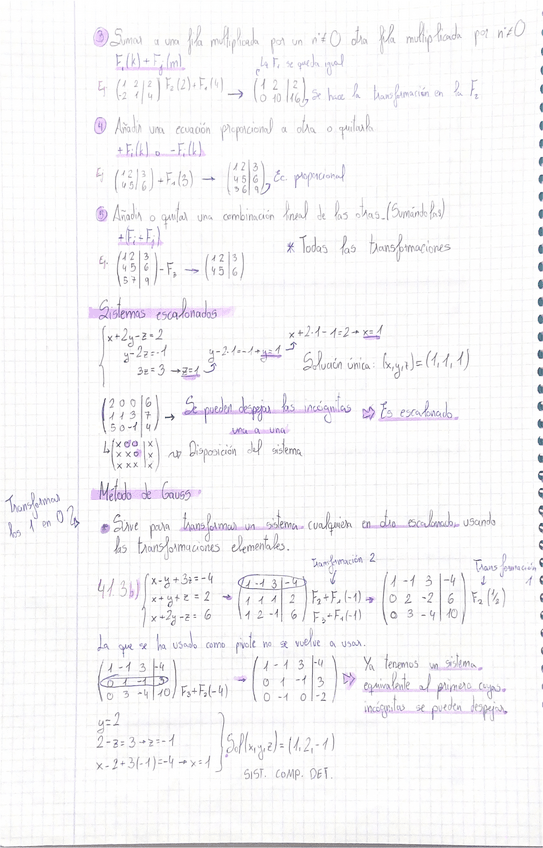 ③ Sumar a una fila multiplicada por un nº≠0 otra fila multiplicada por nº≠0
Fᵢ(k) + Fⱼ(m) ↳ F₁ se queda igual
Ej (1 2 2 | 2; -2 1 | 4) F₂(2)+F₁(4) → (1 2 | 2; 0 10 | 16) Se hace la transformación en la F₂
④ Añadir una ecuación proporcional a otra o quitarla
+Fᵢ(k) o -Fᵢ(k)
Ej (1 2 | 3; 4 5 | 6) + F₁(3) → (1 2 | 3; 4 5 | 6; 3 6 | 9) Ec. proporcional
⑤ Añadir o quitar una combinación lineal de las otras (Sumándolas)
+(Fᵢ+Fⱼ)
* Todas las transformaciones
Ej. (1 2 | 3; 4 5 | 6; 5 7 | 9) - F₃ → (1 2 | 3; 4 5 | 6)
Sistemas escalonados
x+2y-z=2 x+2·1-1=2→x=1
y-2z=-1 y-2·1=-1→y=1
3z=3→z=1 Solución única: (x,y,z)=(1,1,1)
(2 0 0 | 6; 1 1 3 | 7; 5 0 -1 | 4) → Se pueden despejar las incógnitas una a una ⇒ Es escalonado.
(x 0 0 | x; x x 0 | x; x x x | x) Disposición del sistema
Método de Gauss
Transformar los 1 en 0
• Sirve para transformar un sistema cualquiera en otro escalonado, usando
las transformaciones elementales.
Transformación 2 Transformación 1
41.3b) x-y+3z=-4
x+y+z=2
x+2y-z=6
→ (1 -1 3 | -4; 1 1 1 | 2; 1 2 -1 | 6) F₂+F₁(-1) F₃+F₁(-1) → (1 -1 3 | -4; 0 2 -2 | 6; 0 3 -4 | 10) F₂(½)
La que se ha usado como pivote no se vuelve a usar.
(1 -1 3 | -4; 0 1 -1 | 3; 0 3 -4 | 10) F₃+F₂(-4) → (1 -1 3 | -4; 0 1 -1 | 3; 0 -1 0 | -2)
Ya tenemos un sistema
equivalente al primero cuyas
incógnitas se pueden despejar
y=2
2-z=3→z=-1
x-2+3(-1)=-4→x=1
Sol(x,y,z)=(1,2,-1)
SIST. COMP. DET.